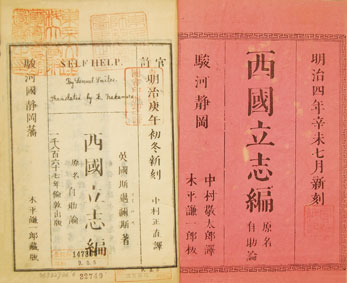 SELF HELP.
By Samuel Smiles.
Translated by K. Nakamura.
官許
明治庚午初冬新刻
英國斯邁爾斯著
中村正直譯
西國立志編
原名自助論
一千八百六十七年倫敦出版
駿河國靜岡藩
木平謙一郎藏版
22789
明治四年辛未七月新刻
西國立志編
原名自助論
駿河靜岡
中村敬太郎譯
木平謙一郎板